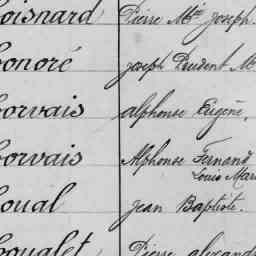 oisnard Pierre Mie Joseph.
onoré Joseph Prudent M
orvais Alphonse Eugène,
orvais Alphonse Fernand
Louis Mari
oual Jean Baptiste.
oualet Pierre Alexand